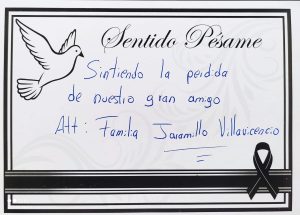 Sentido Pésame
Sintiendo la perdida
de nuestro gran amigo
Att: Familia Jaramillo Villavicencio